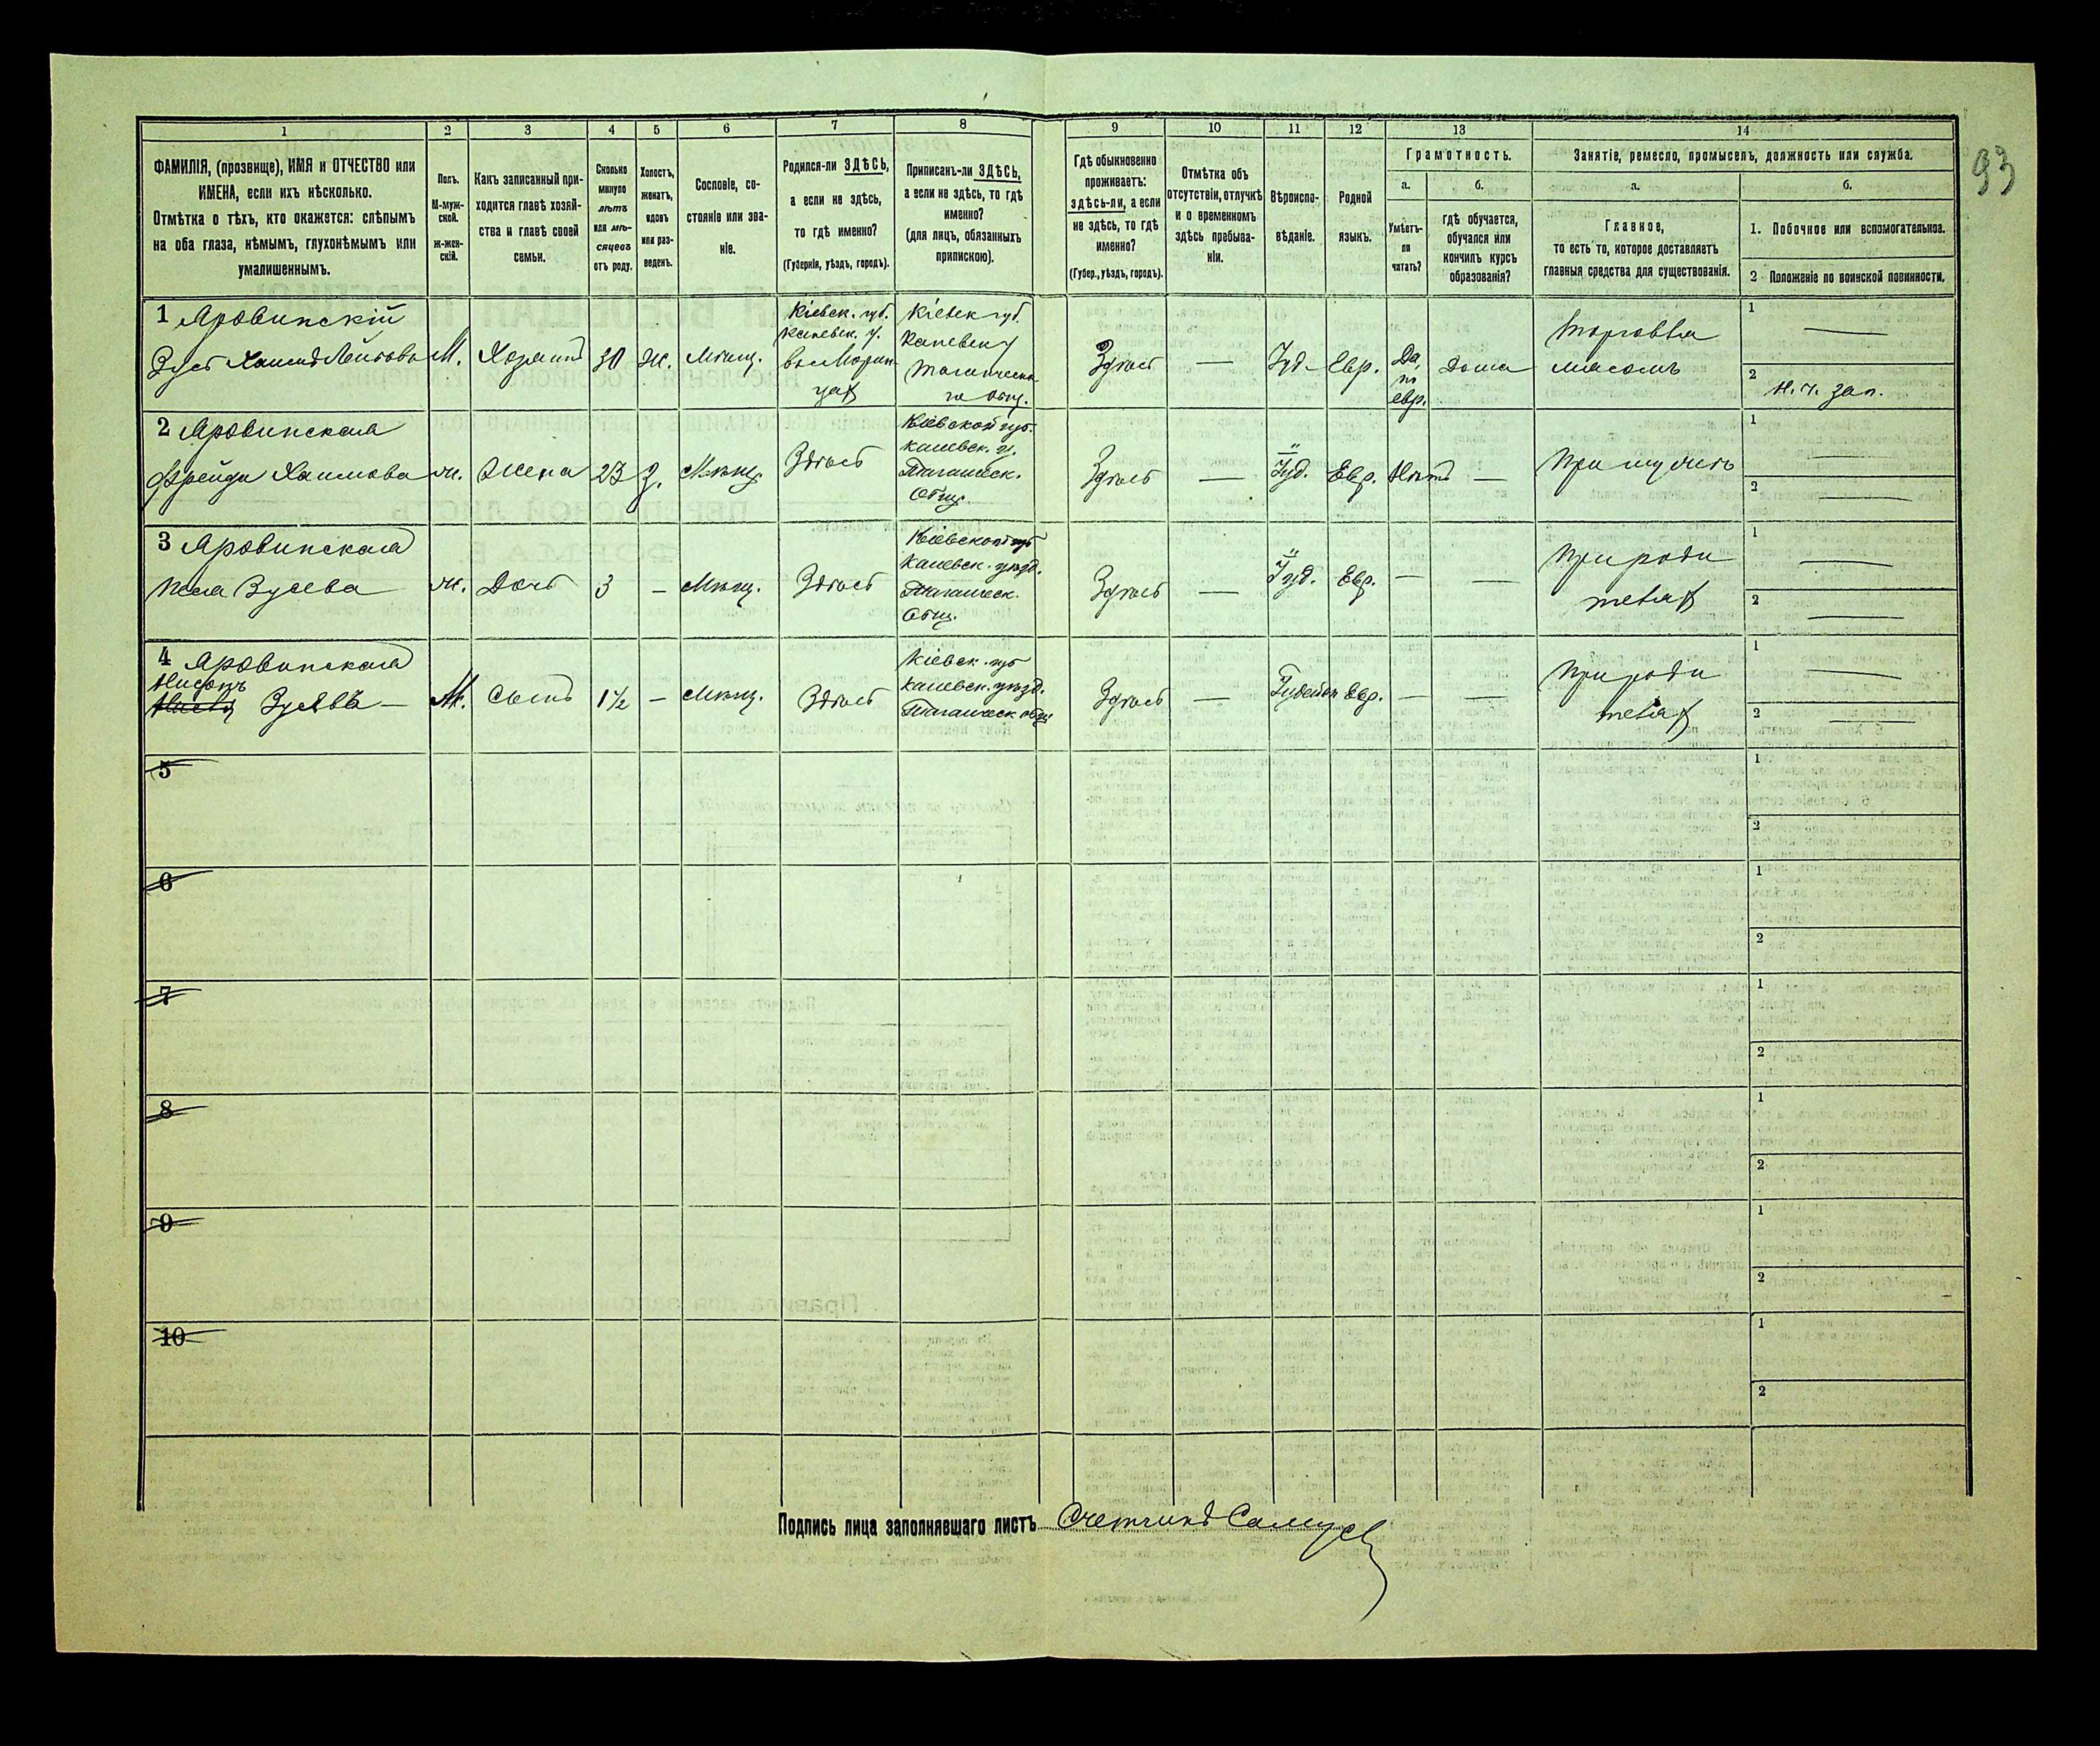 93
1 2 3 4 5 6 7 8 9 10 11 12 13 14
ФАМИЛІЯ, (прозвище), ИМЯ и ОТЧЕСТВО или
ИМЕНА, если ихъ нѣсколько.
Отмѣтка о тѣхъ, кто окажется: слѣпымъ
на оба глаза, нѣмымъ, глухонѣмымъ или
умалишеннымъ.
Полъ.
М-муж-
ской.
Ж-жен-
скій.
Какъ записанный при-
ходится главѣ хозяй-
ства и главѣ своей
семьи.
Сколько
минуло
лѣтъ
или мѣ-
сяцевъ
отъ роду.
Холостъ,
женатъ,
вдовъ
или раз-
веденъ.
Сословіе, со-
стояніе или зва-
ніе.
Родился-ли ЗДѢСЬ,
а если не здѣсь,
то гдѣ именно?
(Губернія, уѣздъ, городъ).
Приписанъ-ли ЗДѢСЬ,
а если не здѣсь, то гдѣ
именно?
(для лицъ, обязанныхъ
припискою).
Гдѣ обыкновенно
проживаетъ:
здѣсь-ли, а если
не здѣсь, то гдѣ
именно?
(Губер., уѣздъ, городъ).
Отмѣтка объ
отсутствіи, отлучкѣ
и о временномъ
здѣсь пребыва-
ніи.
Вѣроиспо-
вѣданіе.
Родной
языкъ.
Грамотность.
а.
Умѣетъ-
ли
читать?
б.
гдѣ обучается,
обучался или
кончилъ курсъ
образованія?
Занятіе, ремесло, промыселъ, должность или служба.
а.
Главное,
то есть то, которое доставляетъ
главныя средства для существованія.
б.
1. Побочное или вспомогательное.
2 Положеніе по воинской повинности.
1 Яровинскій
Зусь Хаимъ Лейбовъ
М.
Хозяинъ
30
Ж.
Мѣщ.
Кіевск. губ.
Каневск. у.
Кіевск губ.
Каневск у
Здѣсь
—
Іуд.
Евр.
Да,
по
евр.
Дома
Торговля
мясомъ
1 —
2 н. ч. зап.
2 Яровинская
Фрейда Хаимова
ж.
Жена
23
З.
Мѣщ.
Здѣсь
Кіевской губ.
Каневск. у.
Таганческ.
Общ.
Здѣсь
—
Іуд.
Евр.
Нѣтъ
—
При мужѣ
1 —
2 —
3 Яровинская
Зусева
ж.
Дочь
3
—
Мѣщ.
Здѣсь
Кіевской губ
Каневск. уѣзд.
Таганческ.
Общ.
Здѣсь
—
Іуд.
Евр.
—
—
При роди
теляхъ
1 —
2 —
4 Яровинская
Нисонъ
Зусевъ —
М.
Сынъ
1½
—
Мѣщ.
Здѣсь
Кіевск. губ
Каневск. уѣзд.
Таганческ общ
Здѣсь
—
Іудейск
Евр.
—
—
При роди
теляхъ
1 —
2 —
5 1 2
6 1 2
7 1 2
8 1 2
9 1 2
10 1 2
Подпись лица заполнявшаго листъ Счетчикъ